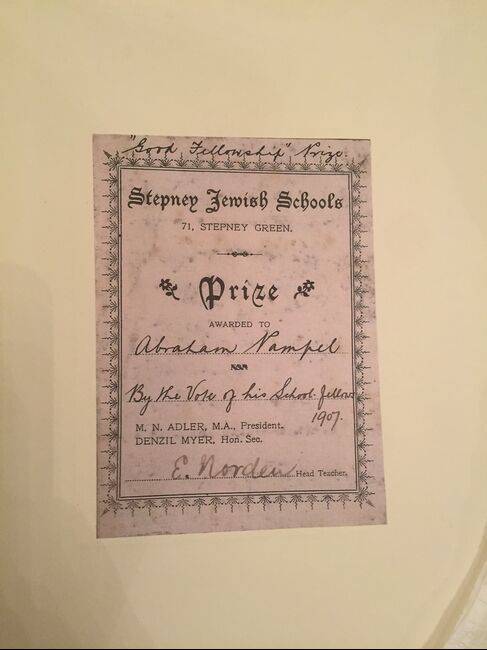 "Good Fellowship" Prize.
Stepney Jewish Schools
71, STEPNEY GREEN.
Prize
AWARDED TO
Abraham Pampel
By the Vote of his School-fellows
1907.
M. N. ADLER, M.A., President.
DENZIL MYER, Hon. Sec.
E. Norden Head Teacher.